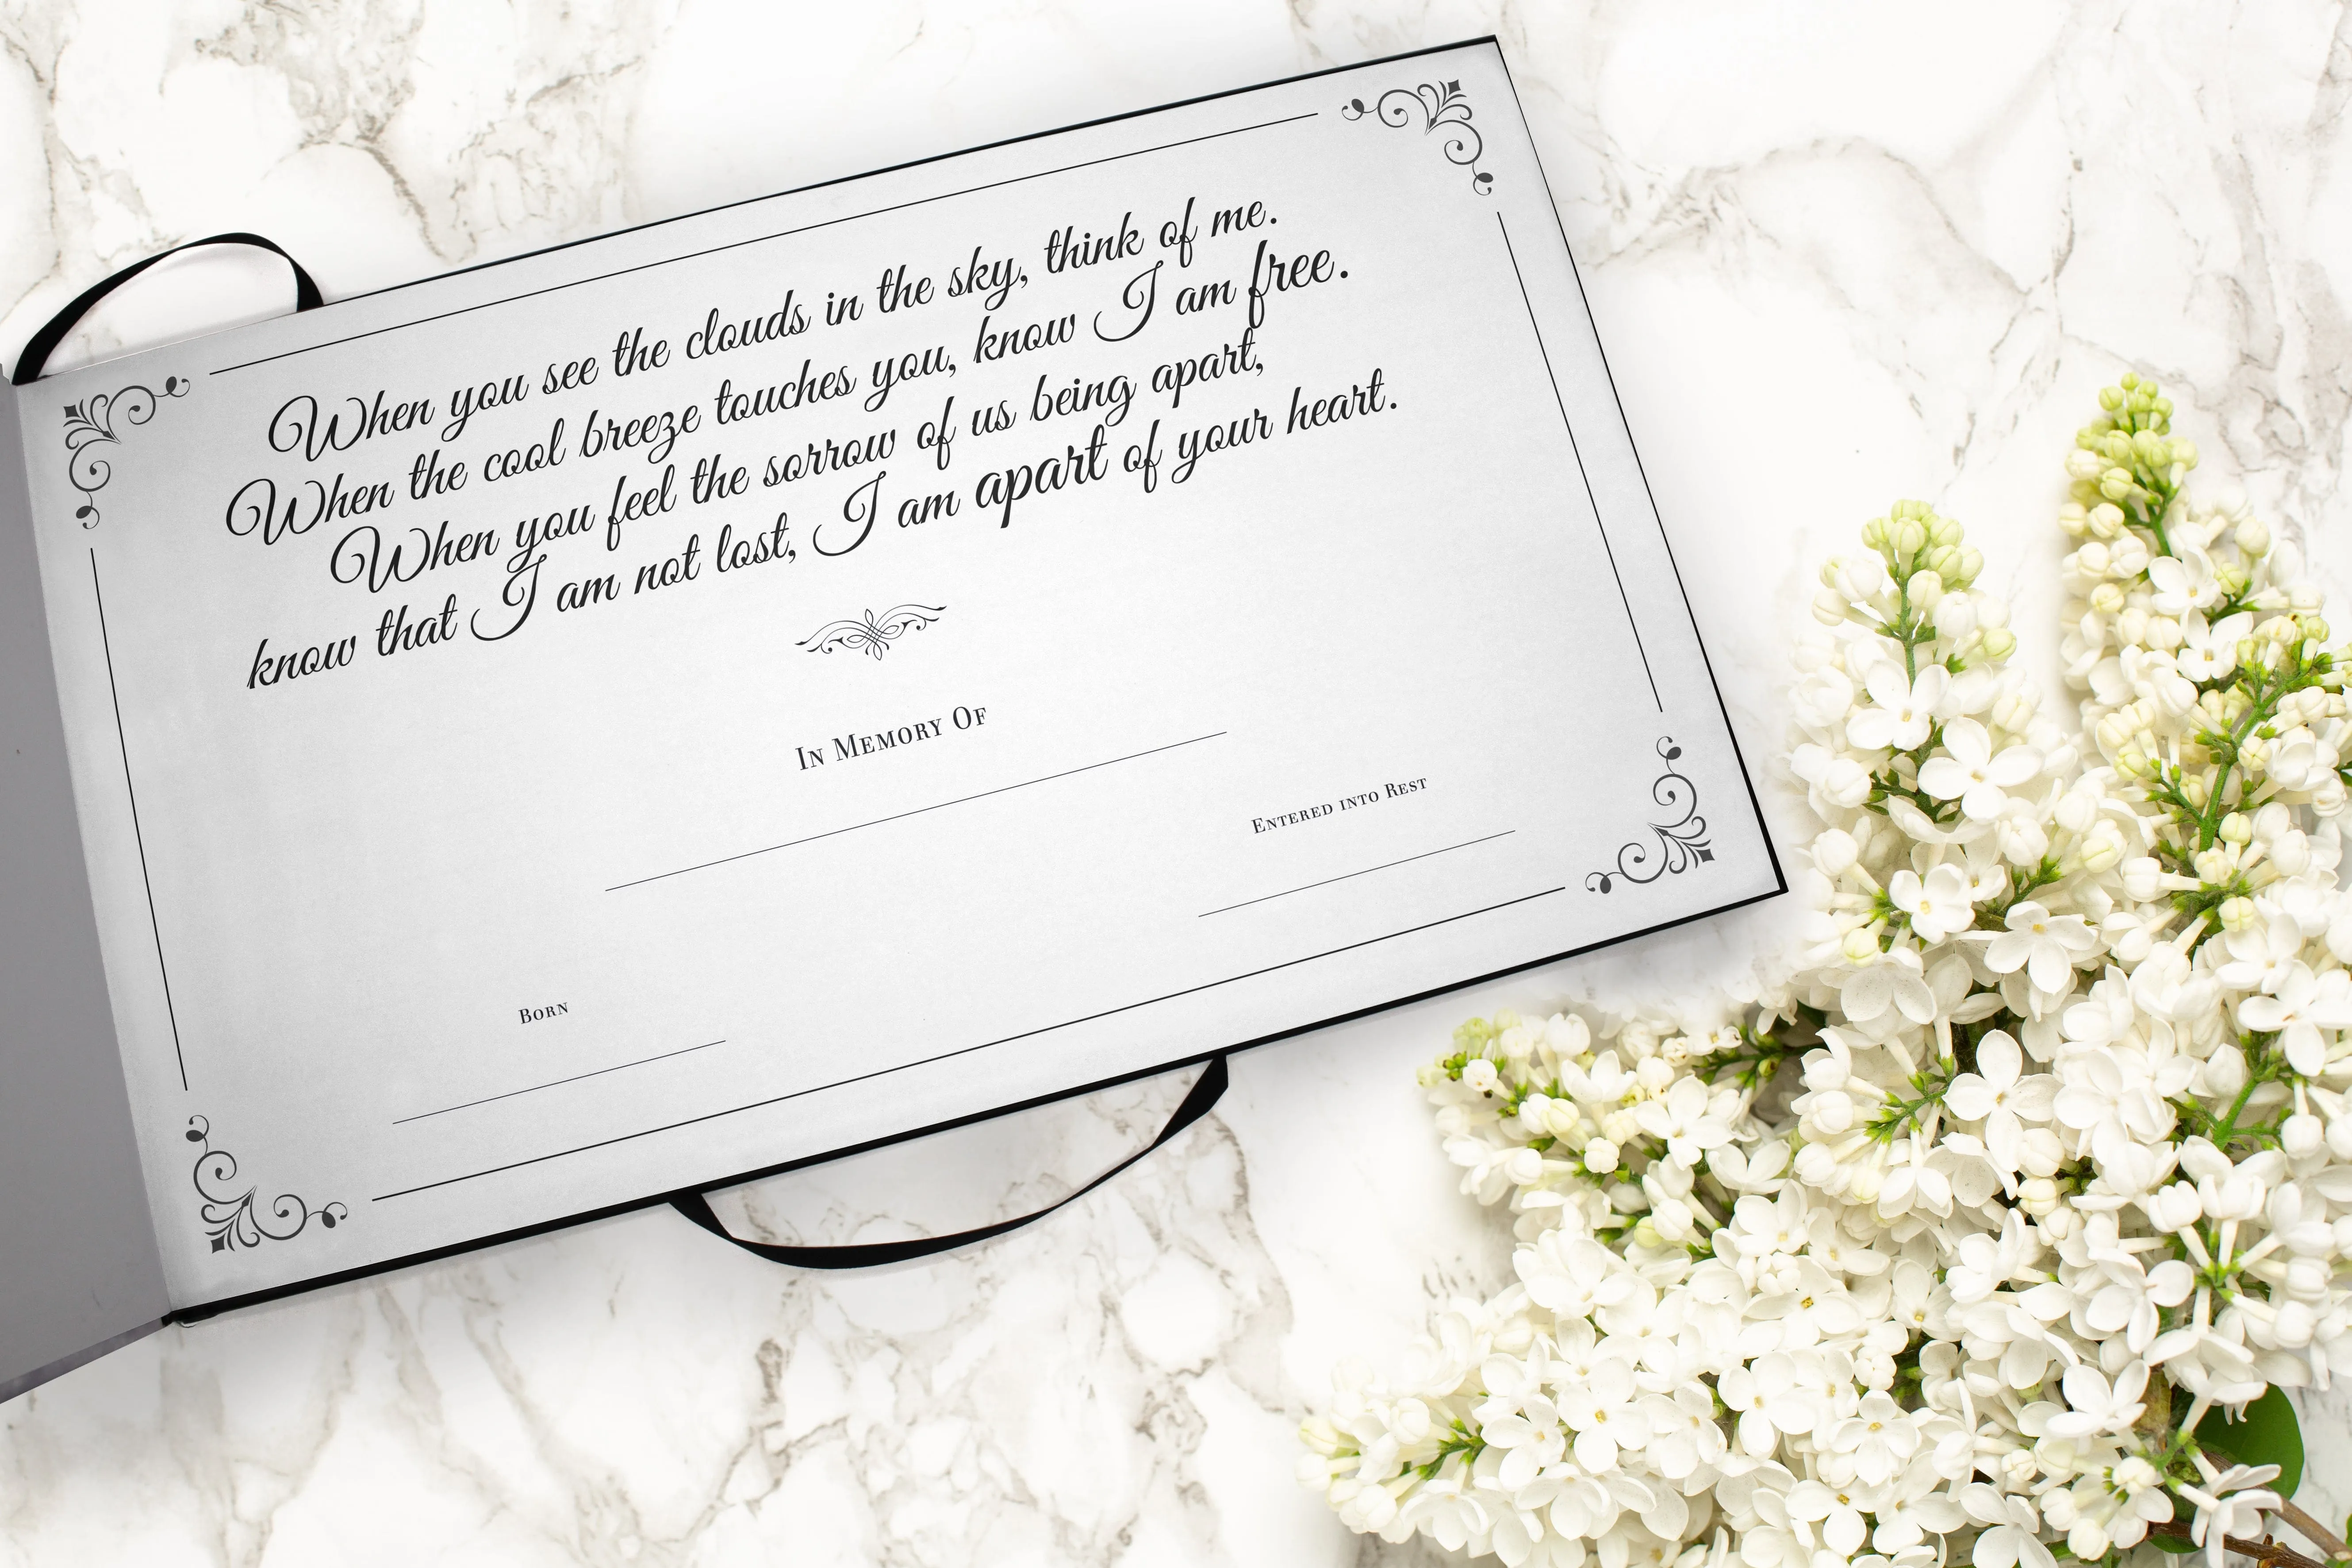 When you see the clouds in the sky, think of me.
When the cool breeze touches you, know I am free.
When you feel the sorrow of us being apart,
know that I am not lost, I am apart of your heart.
In Memory Of
Born
Entered into Rest